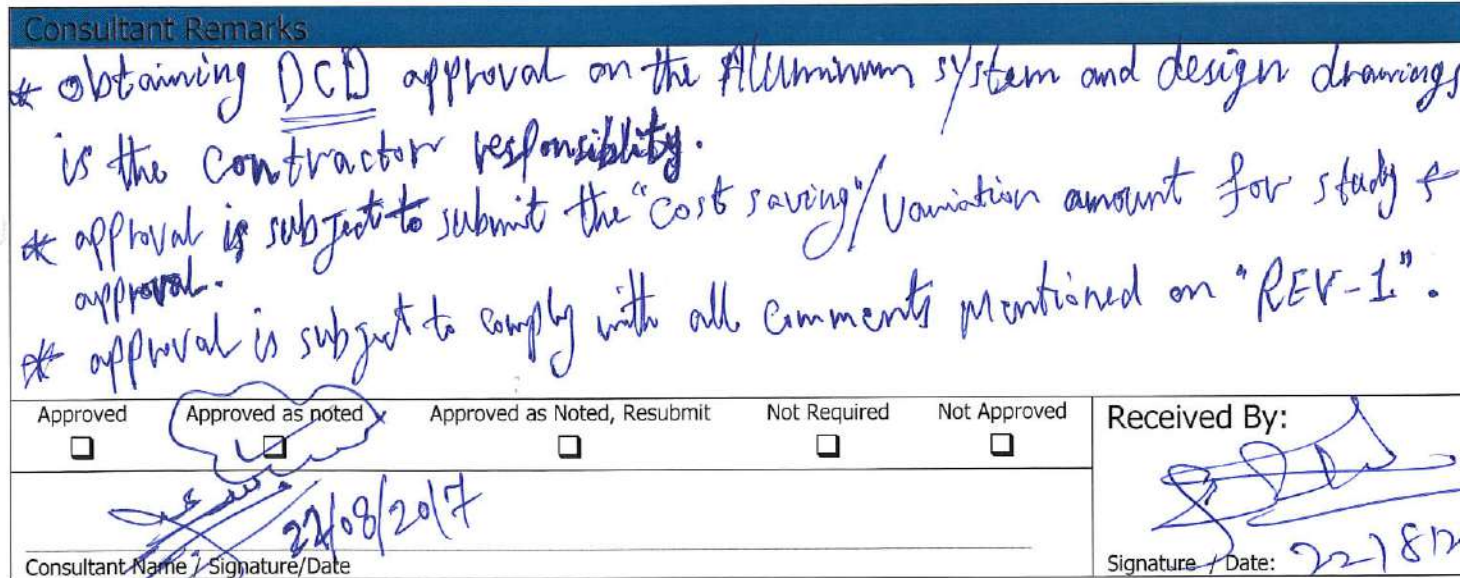 Consultant Remarks
* obtaining DCD approval on the Aluminum system and design drawings
is the contractor responsiblity.
* approval is subject to submit the "cost saving"/variation amount for study &
approval.
* approval is subject to comply with all comments mentioned on "REV-1".
Approved Approved as noted Approved as Noted, Resubmit Not Required Not Approved Received By:
22/08/2017
Consultant Name / Signature/Date Signature / Date: 22/8/2